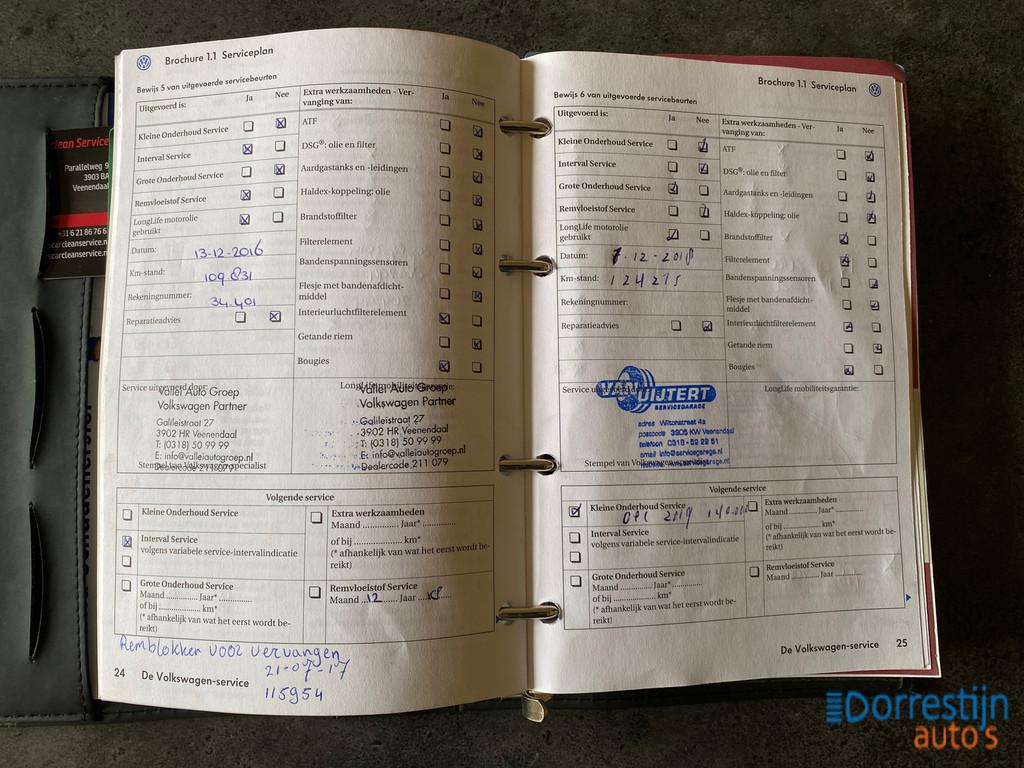 clean Service
Parallelweg 9
3903 BA
Veenendaal
+31 6 21 86 76 6
scarcleanservice.n
scarcleanservice.n
Brochure 1.1 Serviceplan
Bewijs 5 van uitgevoerde servicebeurten
Uitgevoerd is: Ja Nee
Kleine Onderhoud Service
Interval Service
Grote Onderhoud Service
Remvloeistof Service
LongLife motorolie
gebruikt
Datum: 13-12-2016
Km-stand: 109 831
Rekeningnummer: 34.401
Reparatieadvies
Extra werkzaamheden - Ver-
vanging van: Ja Nee
ATF
DSG®: olie en filter
Aardgastanks en -leidingen
Haldex-koppeling: olie
Brandstoffilter
Filterelement
Bandenspanningssensoren
Flesje met bandenafdicht-
middel
Interieurluchtfilterelement
Getande riem
Bougies
Service uitgevoerd door:
Vallei Auto Groep
Volkswagen Partner
Galileistraat 27
3902 HR Veenendaal
T: (0318) 50 99 99
E: info@valleiautogroep.nl
Dealercode 211 079
Stempel van Volkswagen specialist
LongLife mobiliteitsgarantie:
Vallei Auto Groep
Volkswagen Partner
Galileistraat 27
3902 HR Veenendaal
T: (0318) 50 99 99
E: info@valleiautogroep.nl
Dealercode 211 079
Volgende service
Kleine Onderhoud Service
Interval Service
volgens variabele service-intervalindicatie
Grote Onderhoud Service
Maand .............. Jaar* ..............
of bij .............. km*
(* afhankelijk van wat het eerst wordt be-
reikt)
Extra werkzaamheden
Maand .............. Jaar* ..............
of bij .............. km*
(* afhankelijk van wat het eerst wordt be-
reikt)
Remvloeistof Service
Maand ..12.. Jaar ..18..
Remblokken voor vervangen
21-07-17
115954
24 De Volkswagen-service
Brochure 1.1 Serviceplan
Bewijs 6 van uitgevoerde servicebeurten
Uitgevoerd is: Ja Nee
Kleine Onderhoud Service
Interval Service
Grote Onderhoud Service
Remvloeistof Service
LongLife motorolie
gebruikt
Datum: 7-12-2018
Km-stand: 124215
Rekeningnummer:
Reparatieadvies
Extra werkzaamheden - Ver-
vanging van: Ja Nee
ATF
DSG®: olie en filter
Aardgastanks en -leidingen
Haldex-koppeling: olie
Brandstoffilter
Filterelement
Bandenspanningssensoren
Flesje met bandenafdicht-
middel
Interieurluchtfilterelement
Getande riem
Bougies
Service uitgevoerd door:
VAN UIJTERT
SERVICEGARAGE
adres Wiltonstraat 4a
postcode 3905 KW Veenendaal
telefoon 0318 - 52 22 51
email info@servicegarage.nl
Stempel van Volkswagen specialist
LongLife mobiliteitsgarantie:
Volgende service
Kleine Onderhoud Service
Dec 2019 140.000
Interval Service
volgens variabele service-intervalindicatie
Grote Onderhoud Service
Maand .............. Jaar* ..............
of bij .............. km*
(* afhankelijk van wat het eerst wordt be-
reikt)
Extra werkzaamheden
Maand .............. Jaar* ..............
of bij .............. km*
(* afhankelijk van wat het eerst wordt be-
reikt)
Remvloeistof Service
Maand .............. Jaar ..............
De Volkswagen-service 25
Dorrestijn
auto's